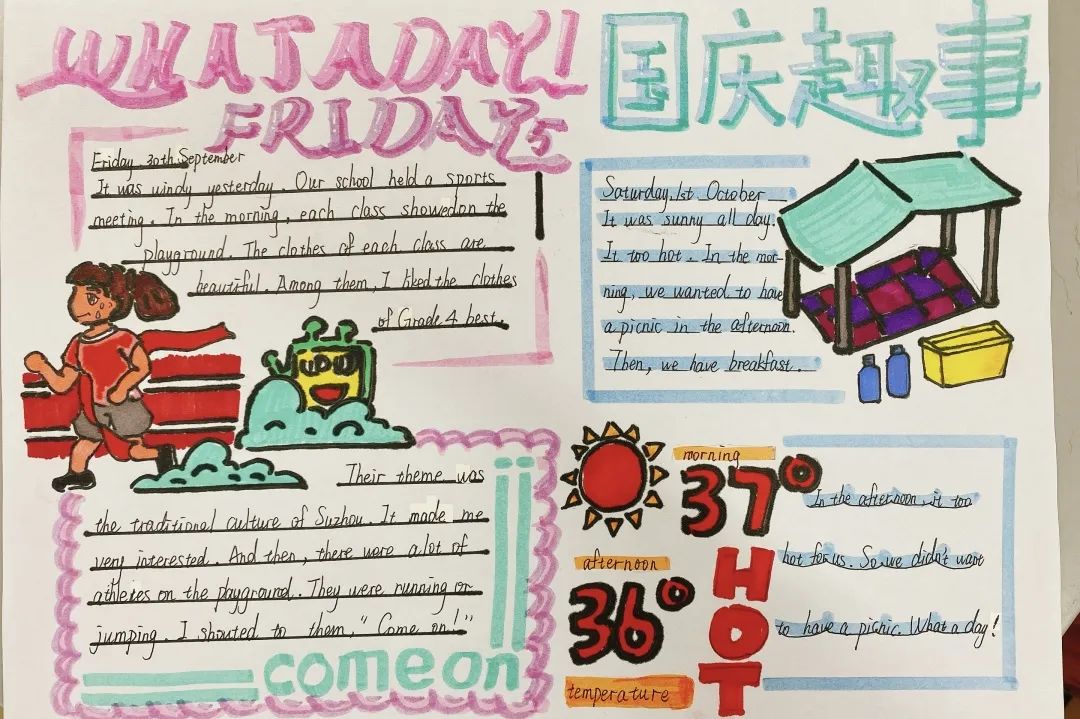 WHAT A DAY!
FRIDAY
Friday, 30th September
It was windy yesterday. Our school held a sports
meeting. In the morning, each class showed on the
playground. The clothes of each class are
beautiful. Among them, I liked the clothes
of Grade 4 best.
Their theme was
the traditional culture of Suzhou. It made me
very interested. And then, there were a lot of
athletes on the playground. They were running or
jumping. I shouted to them, "Come on!"
come on
国庆趣事
Saturday, 1st October
It was sunny all day.
It too hot. In the mor-
ning, we wanted to have
a picnic in the afternoon.
Then, we have breakfast.
morning
37°
afternoon
36°
temperature
HOT
In the afternoon, it too
hot for us. So we didn't want
to have a picnic. What a day!